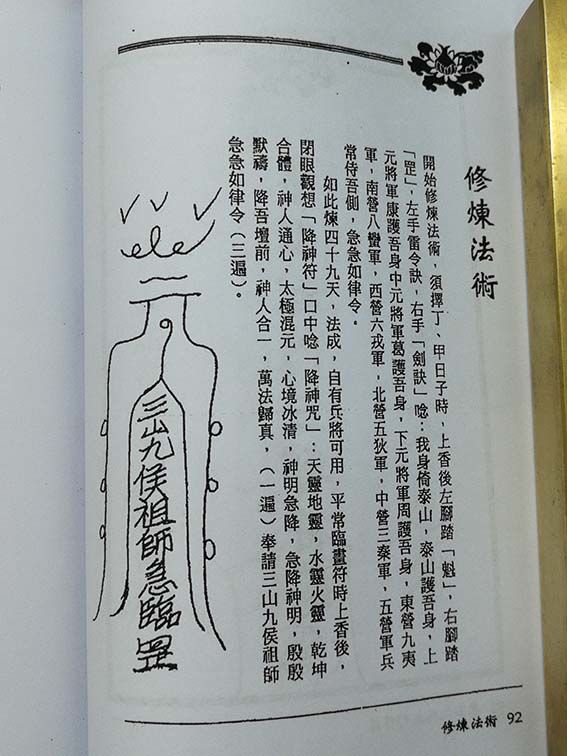 修煉法術
開始修煉法術，須擇丁、甲日子時，上香後左腳踏「魁」，右腳踏
「罡」，左手雷令訣，右手「劍訣」唸：我身倚泰山，泰山護吾身，上
元將軍康護吾身中元將軍葛護吾身，下元將軍周護吾身，東營九夷
軍，南營八蠻軍，西營六戎軍，北營五狄軍，中營三秦軍，五營軍兵
常侍吾側，急急如律令。
如此煉四十九天，法成，自有兵將可用，平常臨畫符時上香後，
閉眼觀想「降神符」口中唸「降神咒」：天靈地靈，水靈火靈，乾坤
合體，神人通心，太極混元，心境冰清，神明急降，急降神明，殷殷
默禱，降吾壇前，神人合一，萬法歸真，（一遍）奉請三山九侯祖師
急急如律令（三遍）。
三山九侯祖師急臨罡
修煉法術 92